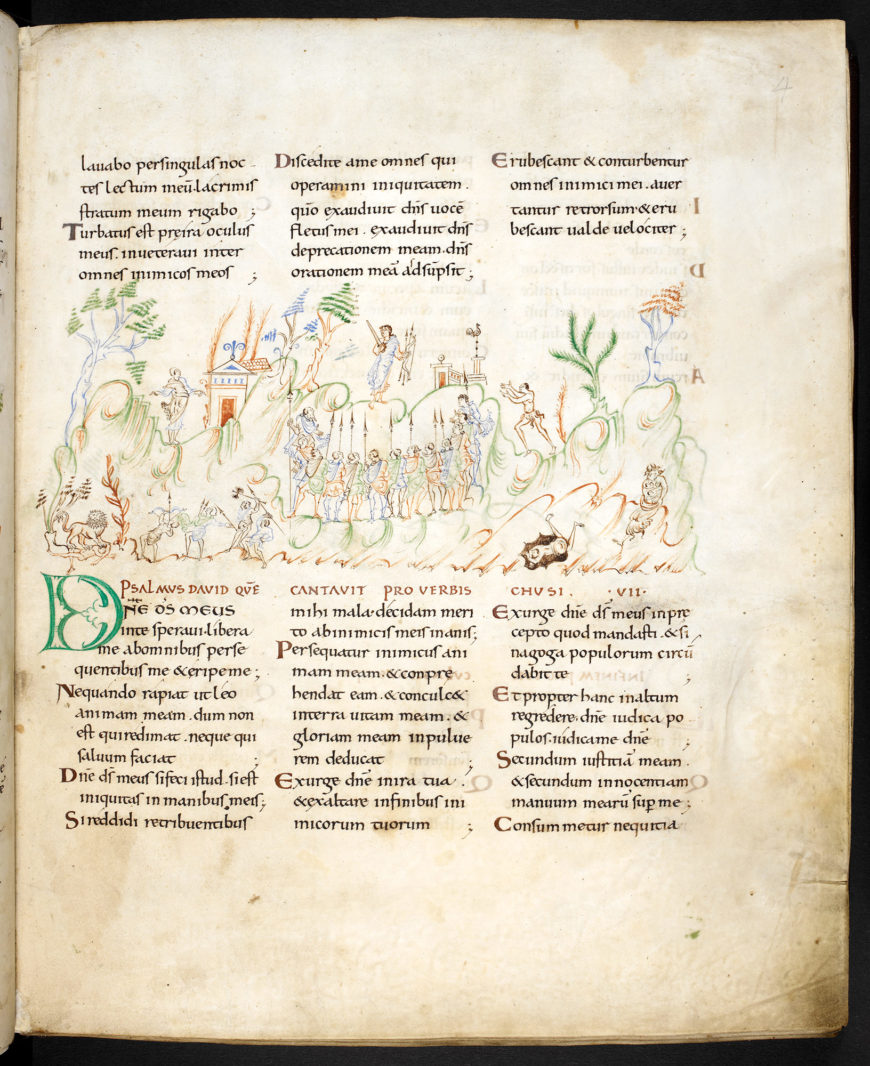 4
lauabo persingulas noc
tes lectum meū·lacrimis
stratum meum rigabo ;
Turbatus est preira oculus
meus. inueteraui inter
omnes inimicos meos ;
Discedite ame omnes qui
operamini iniquitatem.
quō exaudiuit dn̄s uocē
fletus mei. exaudiuit dn̄s
deprecationem meam. dn̄s
orationem meā adsūpsit ;
Erubescant & conturbentur
omnes inimici mei. auer
tantur retrorsum·&eru
bescant ualde uelociter ;
PSALMUS DAVID QUĒ CANTAVIT PRO VERBIS CHUSI. ·VII·
DNĒ DS̄ MEUS
inte speraui·libera
me abomnibus perse
quentibus me &eripeme ;
Nequando rapiat ut leo
animam meam. dum non
est quiredimat. neque qui
saluum faciat ;
Dn̄e ds̄ meus sifeci istud. si est
iniquitas in manibus meis ;
Si reddidi retribuentibus
mihi mala·decidam meri
to abinimicis meis inanis ;
Persequatur inimicus ani
mam meam. &conpre
hendat eam. &conculc&
interra uitam meam. &
gloriam meam inpulue
rem deducat ;
Exurge dn̄e inira tua.
&exaltare infinibus ini
micorum tuorum ;
Exurge dn̄e ds̄ meus inpre
cepto quod mandasti. &si
nagoga populorum circū
dabit te ;
Et propter hanc inaltum
regredere. dn̄e iudica po
pulos. iudicame dn̄e
Secundum iustitiā meam.
&secundum innocentiam
manuum mearū sup̄ me ;
Consummetur nequitia